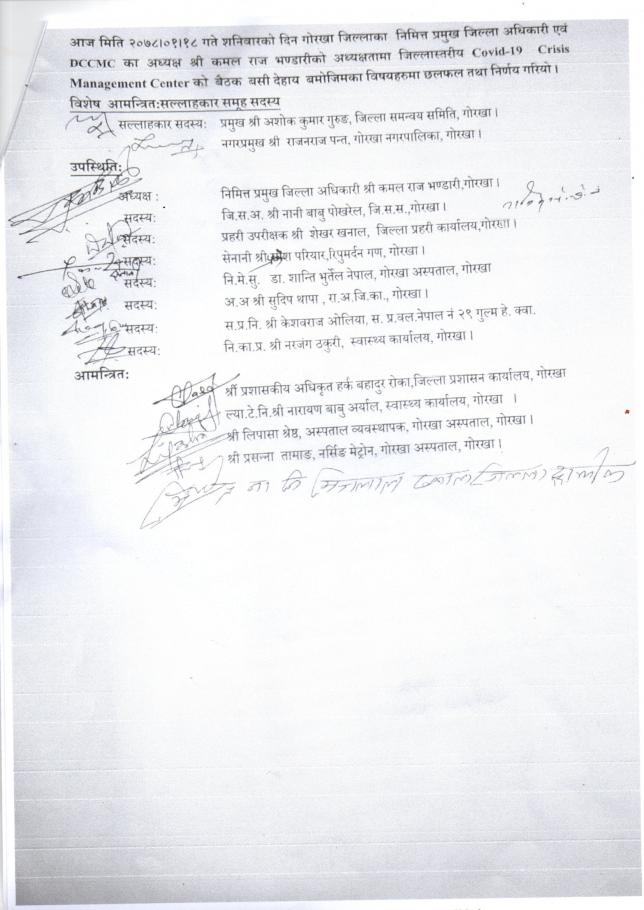 आज मिति २०७८।०१।१८ गते शनिवारको दिन गोरखा जिल्लाका निमित्त प्रमुख जिल्ला अधिकारी एवं
DCCMC का अध्यक्ष श्री कमल राज भण्डारीको अध्यक्षतामा जिल्लास्तरीय Covid-19 Crisis
Management Center को बैठक बसी देहाय बमोजिमका विषयहरुमा छलफल तथा निर्णय गरियो।
विशेष आमन्त्रित:सल्लाहकार समूह सदस्य
सल्लाहकार सदस्य: प्रमुख श्री अशोक कुमार गुरुङ, जिल्ला समन्वय समिति, गोरखा।
नगरप्रमुख श्री राजनराज पन्त, गोरखा नगरपालिका, गोरखा।
उपस्थिति:
अध्यक्ष : निमित्त प्रमुख जिल्ला अधिकारी श्री कमल राज भण्डारी,गोरखा।
सदस्य: जि.स.अ. श्री नानी बाबु पोखरेल, जि.स.स.,गोरखा।
सदस्य: प्रहरी उपरीक्षक श्री शेखर खनाल, जिल्ला प्रहरी कार्यालय,गोरखा।
सदस्य: सेनानी श्री परियार,रिपुमर्दन गण, गोरखा।
सदस्य: नि.मे.सु. डा. शान्ति भुर्तेल नेपाल, गोरखा अस्पताल, गोरखा
सदस्य: अ.अ श्री सुदिप थापा , रा.अ.जि.का., गोरखा।
सदस्य: स.प्र.नि. श्री केशवराज ओलिया, स. प्र.वल.नेपाल नं २९ गुल्म हे. क्वा.
सदस्य: नि.का.प्र. श्री नरजंग ठकुरी, स्वास्थ्य कार्यालय, गोरखा।
आमन्त्रित:
श्री प्रशासकीय अधिकृत हर्क बहादुर रोका,जिल्ला प्रशासन कार्यालय, गोरखा
ल्या.टे.नि.श्री नारायण बाबु अर्याल, स्वास्थ्य कार्यालय, गोरखा ।
श्री लिपासा श्रेष्ठ, अस्पताल व्यवस्थापक, गोरखा अस्पताल, गोरखा।
श्री प्रसन्ना तामाङ, नर्सिङ मेट्रोन, गोरखा अस्पताल, गोरखा।